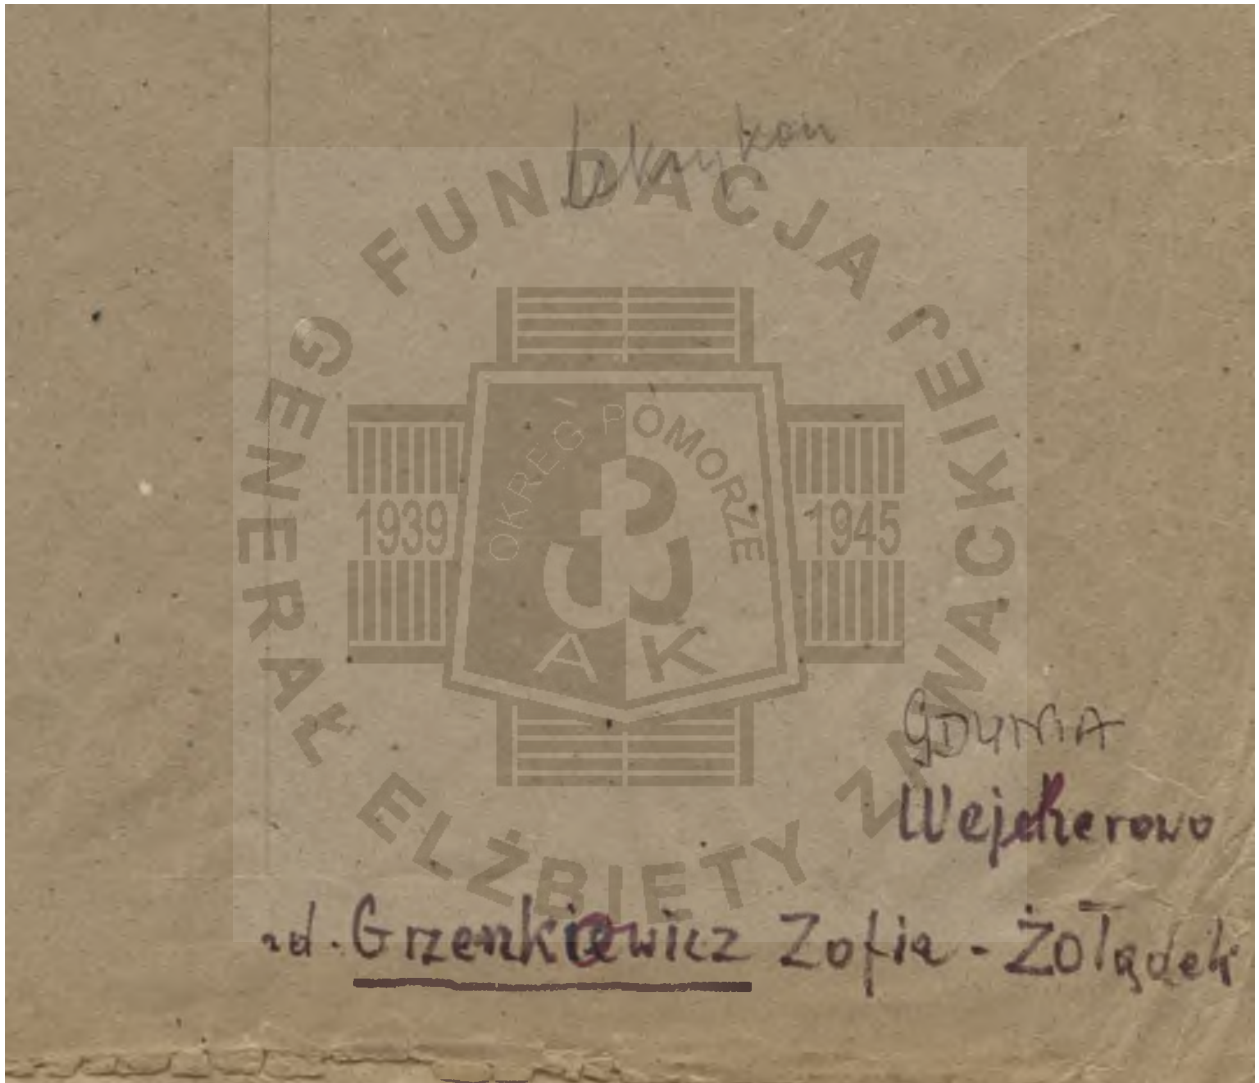 Leksykon
FUNDACJA
GENERAŁ ELŻBIETY ZAWACKIEJ
OKRĘG POMORZE
1939
1945
AK
GDYNIA
Wejherowo
Grzenkiewicz Zofia - Żołądek